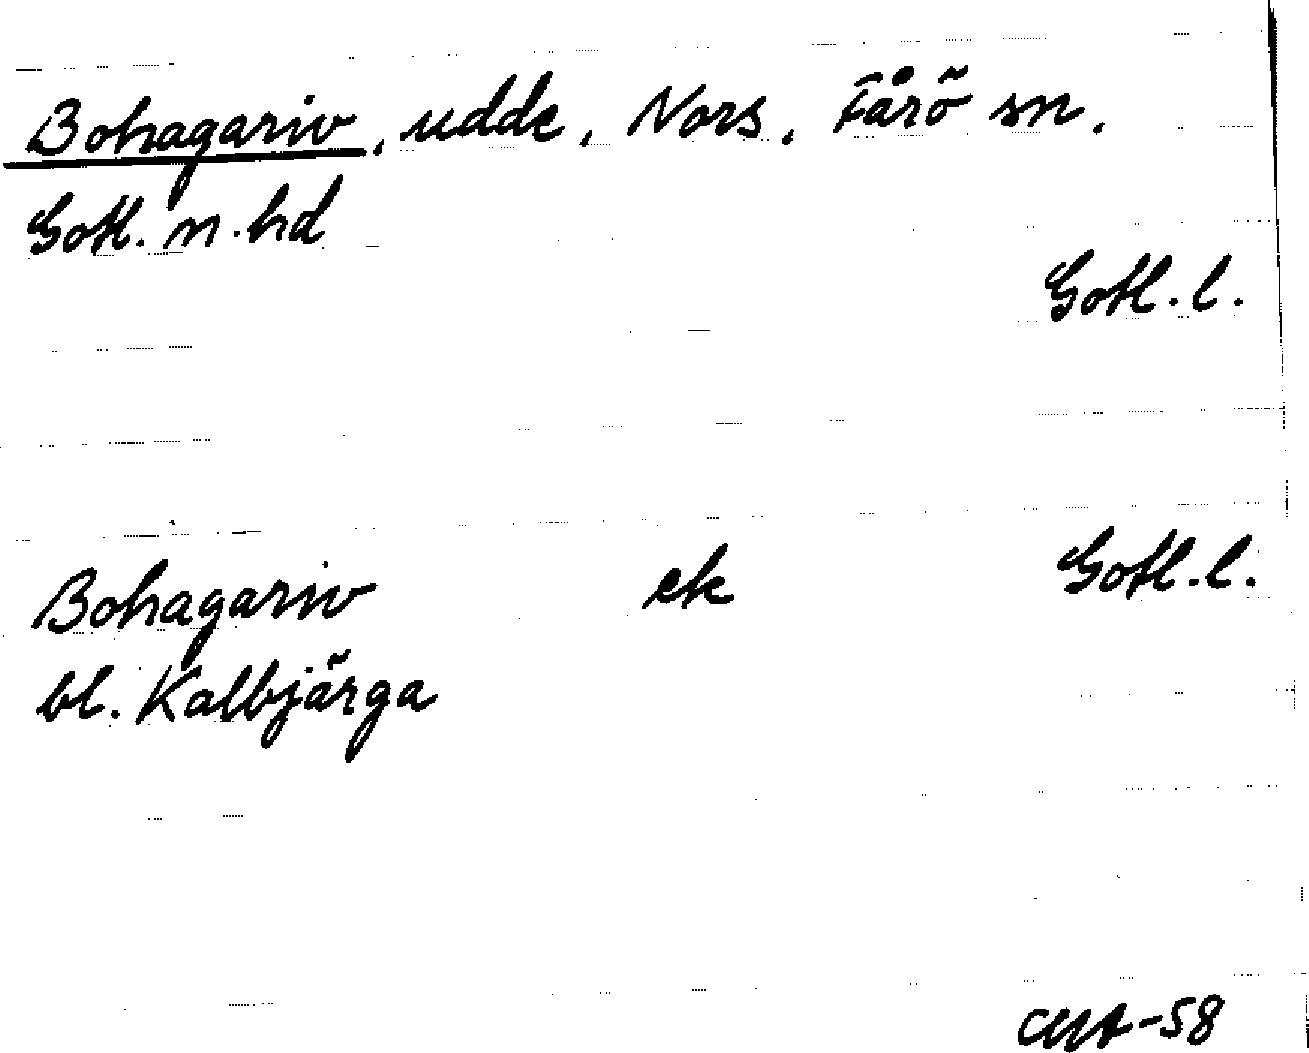 Bohagariv, udde, Nors, Fårö sn.
Gotl. n. hd
Gotl. l.
Bohagariv ek Gotl. l.
bl. Kalbjärga
-58